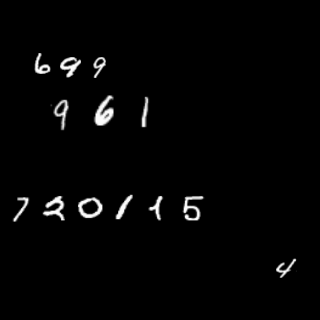 699
961
720115
4